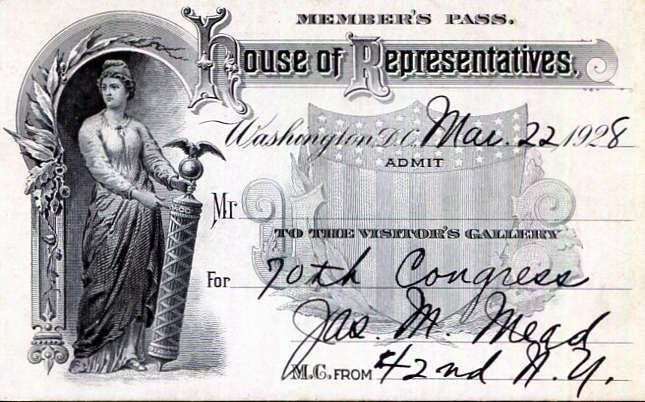 MEMBER'S PASS.
House of Representatives.
Washington D.C. Mar. 22 1928
ADMIT
Mr
TO THE VISITOR'S GALLERY
For 70th Congress
Jas. M. Mead
M.C. FROM 42nd N.Y.